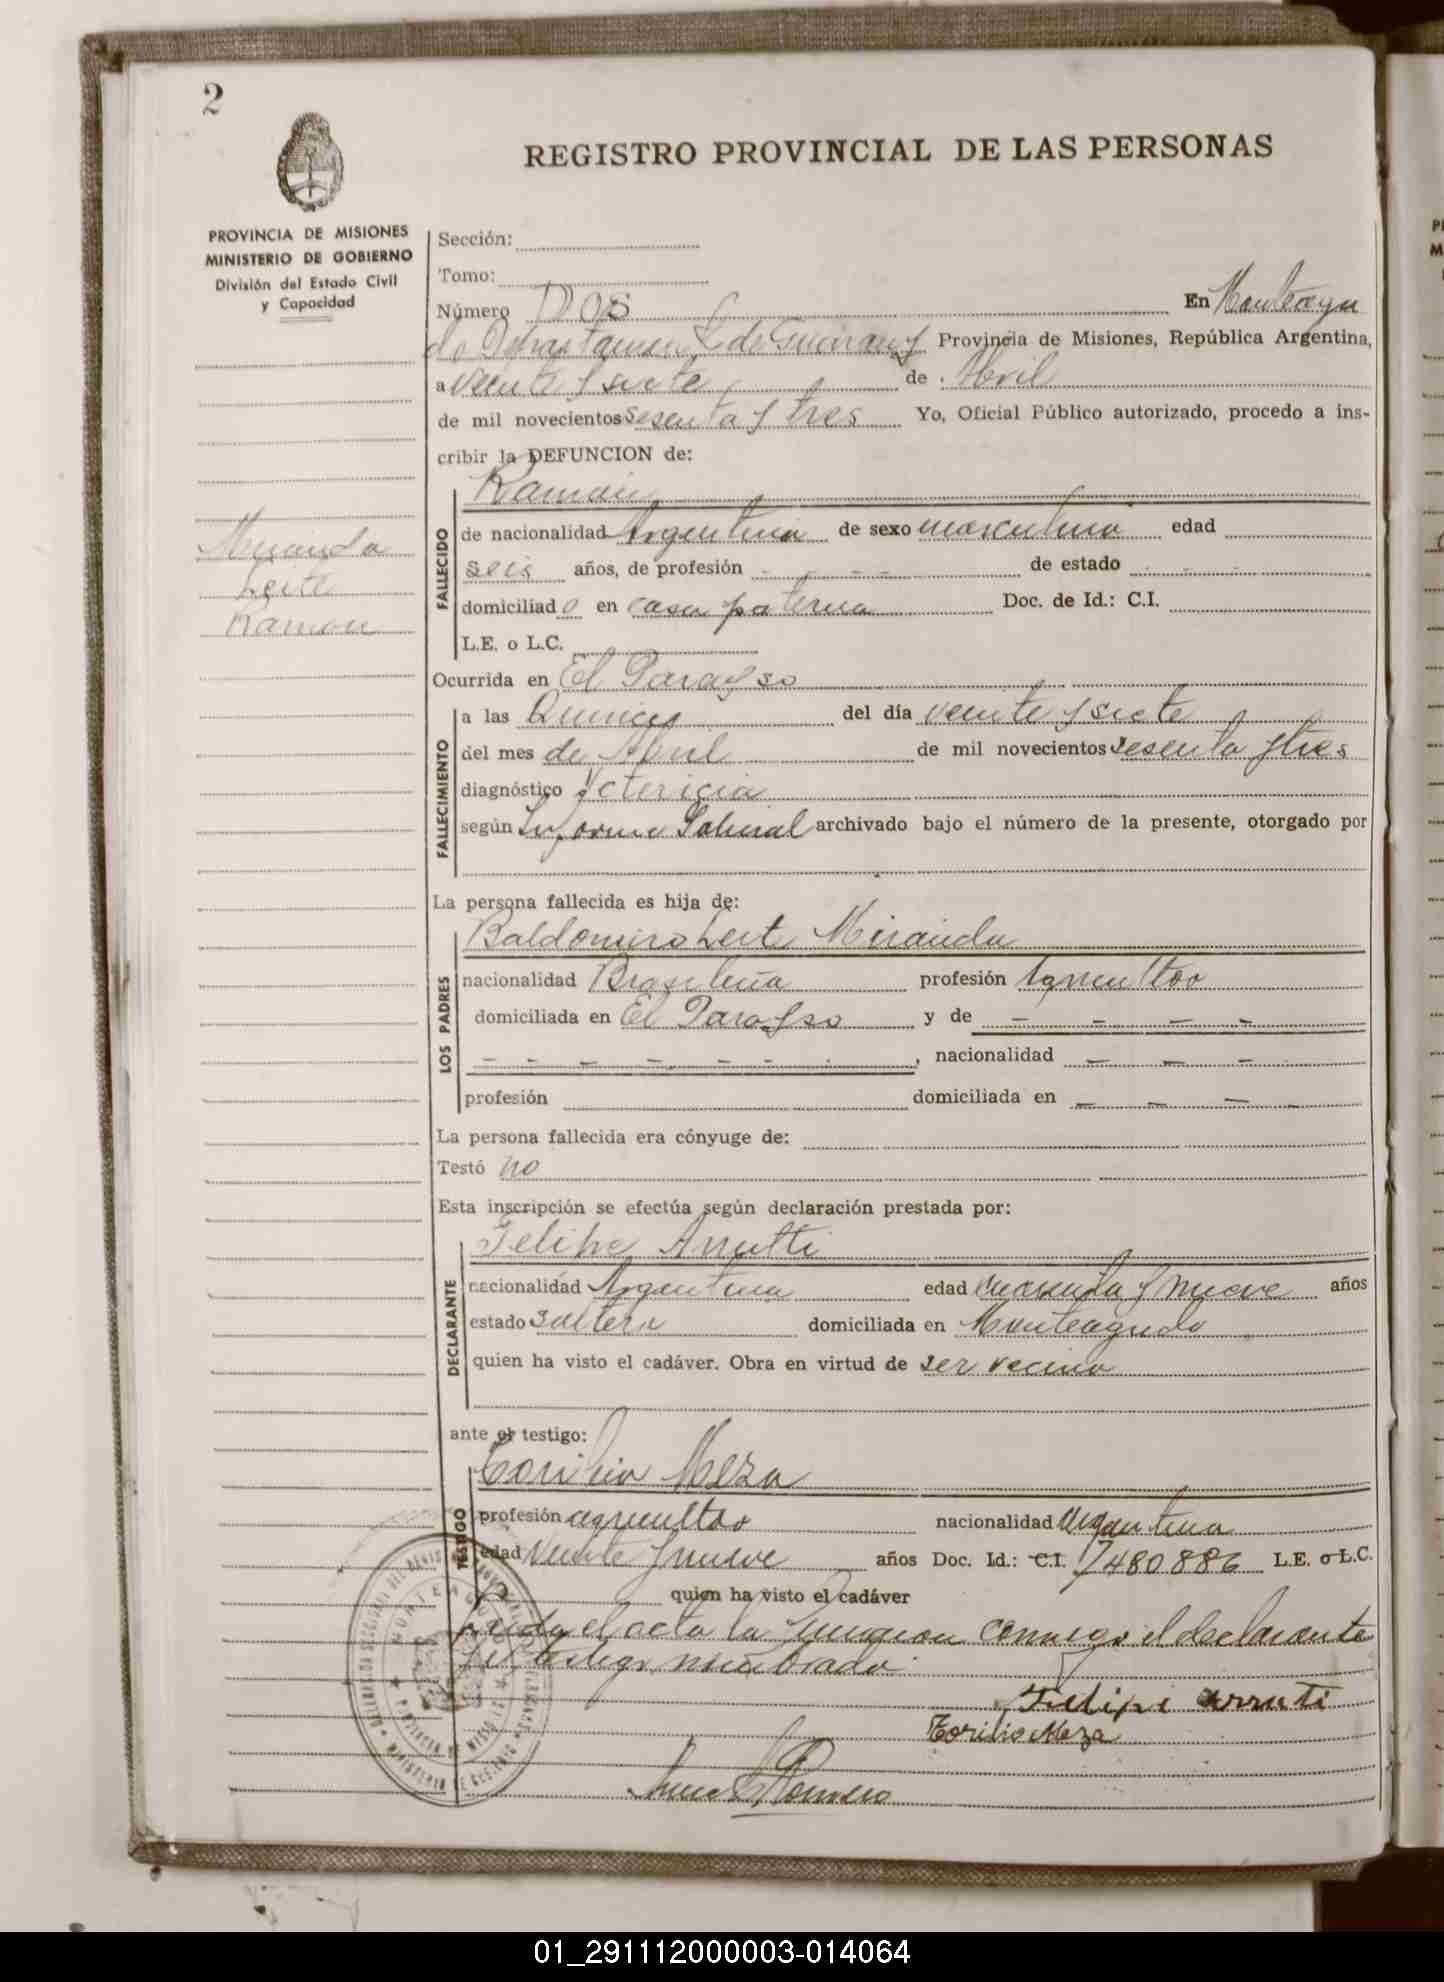 2
REGISTRO PROVINCIAL DE LAS PERSONAS
PROVINCIA DE MISIONES
MINISTERIO DE GOBIERNO
División del Estado Civil
y Capacidad
Sección:
Tomo:
Número Dos En Monteagu
do Departamento de Guarany Provincia de Misiones, República Argentina,
a veinte y siete de Abril
de mil novecientos sesenta y tres Yo, Oficial Público autorizado, procedo a ins-
cribir la DEFUNCION de:
Ramón
Miranda
Leite
Ramón
FALLECIDO
de nacionalidad Argentina de sexo masculino edad
seis años, de profesión - - - - de estado - - -
domiciliado en casa paterna Doc. de Id.: C.I.
L.E. o L.C.
Ocurrida en El Parayso
FALLECIMIENTO
a las Quince del día veinte y siete
del mes de Abril de mil novecientos sesenta y tres
diagnóstico Yctericia
según Informe Policial archivado bajo el número de la presente, otorgado por
La persona fallecida es hija de:
LOS PADRES
Baldomiro Leite Miranda
nacionalidad Brasileña profesión Agricultor
domiciliada en El Parayso y de - - - -
- - - - - - , nacionalidad - - -
profesión domiciliada en - - - -
La persona fallecida era cónyuge de:
Testó no
Esta inscripción se efectúa según declaración prestada por:
DECLARANTE
Felipe Arrutti
nacionalidad Argentina edad cuarenta y nueve años
estado soltero domiciliada en Monteagudo
quien ha visto el cadáver. Obra en virtud de ser vecino
ante el testigo:
TESTIGO
Toribio Meza
profesión agricultor nacionalidad argentina
edad veinte y nueve años Doc. Id.: C.I. 7480886 L.E. o L.C.
quien ha visto el cadáver
Leida el acta la firmaron conmigo el declarante
y el testigo nombrado.
Felipe Arruti
Toribio Meza
Romero
01_291112000003-014064